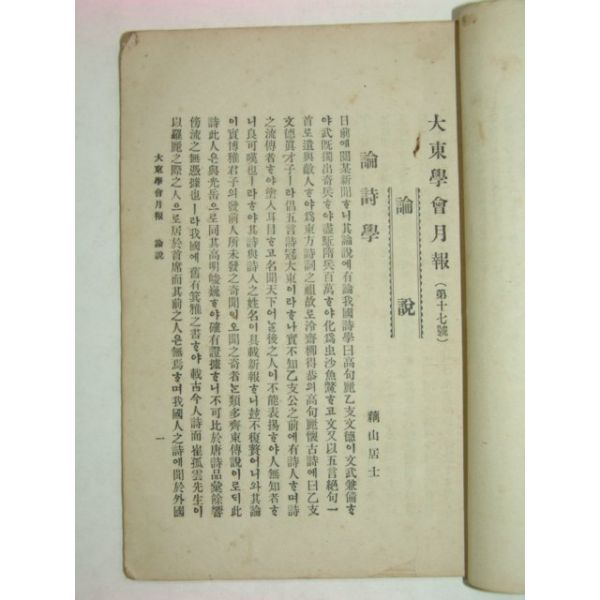 大東學會月報 (第十七號)
論說
論詩學
藕山居士
日前에閱某新聞ᄒᆞ니其論說에有論我國詩學曰高句麗乙支文德이文武兼備ᄒᆞ
야武旣獨出奇兵ᄒᆞ야盡斬隋兵百萬ᄒᆞ야化爲虫沙魚鱉ᄒᆞ고文又以五言絶句一
首로遺與敵人ᄒᆞ야爲東方詩詞之祖故로泠齋柳得恭의高句麗懷古詩에曰乙支
文德眞才子ㅣ라倡五言詩冠大東이라ᄒᆞ나實不知乙支公之前에有詩人ᄒᆞ며詩
之流傳者ᄒᆞ야塗人耳目ᄒᆞ고名聞天下어ᄂᆞᆯ後之人이不能表揚ᄒᆞ야人無知者ᄒᆞ
니良可嘆也ㅣ라ᄒᆞ야其詩與詩人之姓名이具載新報ᄒᆞ니玆不復贅어니와其論
이實博雅君子의發前人所未發之奇聞일ᄉᆡ聞之奇者ᄂᆞᆫ類多齊東傳說이로ᄃᆡ此
詩此人은與光岳으로同其高明峻巍ᄒᆞ야確有證據ᄒᆞ니不可比於唐詩品彙餘響
傍流之無憑據也ㅣ라我國에舊有箕雅之書ᄒᆞ야載古今人詩而崔孤雲先生이
以羅麗之際之人으로居於首席而其前之人은無焉ᄒᆞ며我國人之詩에聞於外國
大東學會月報 論說
一